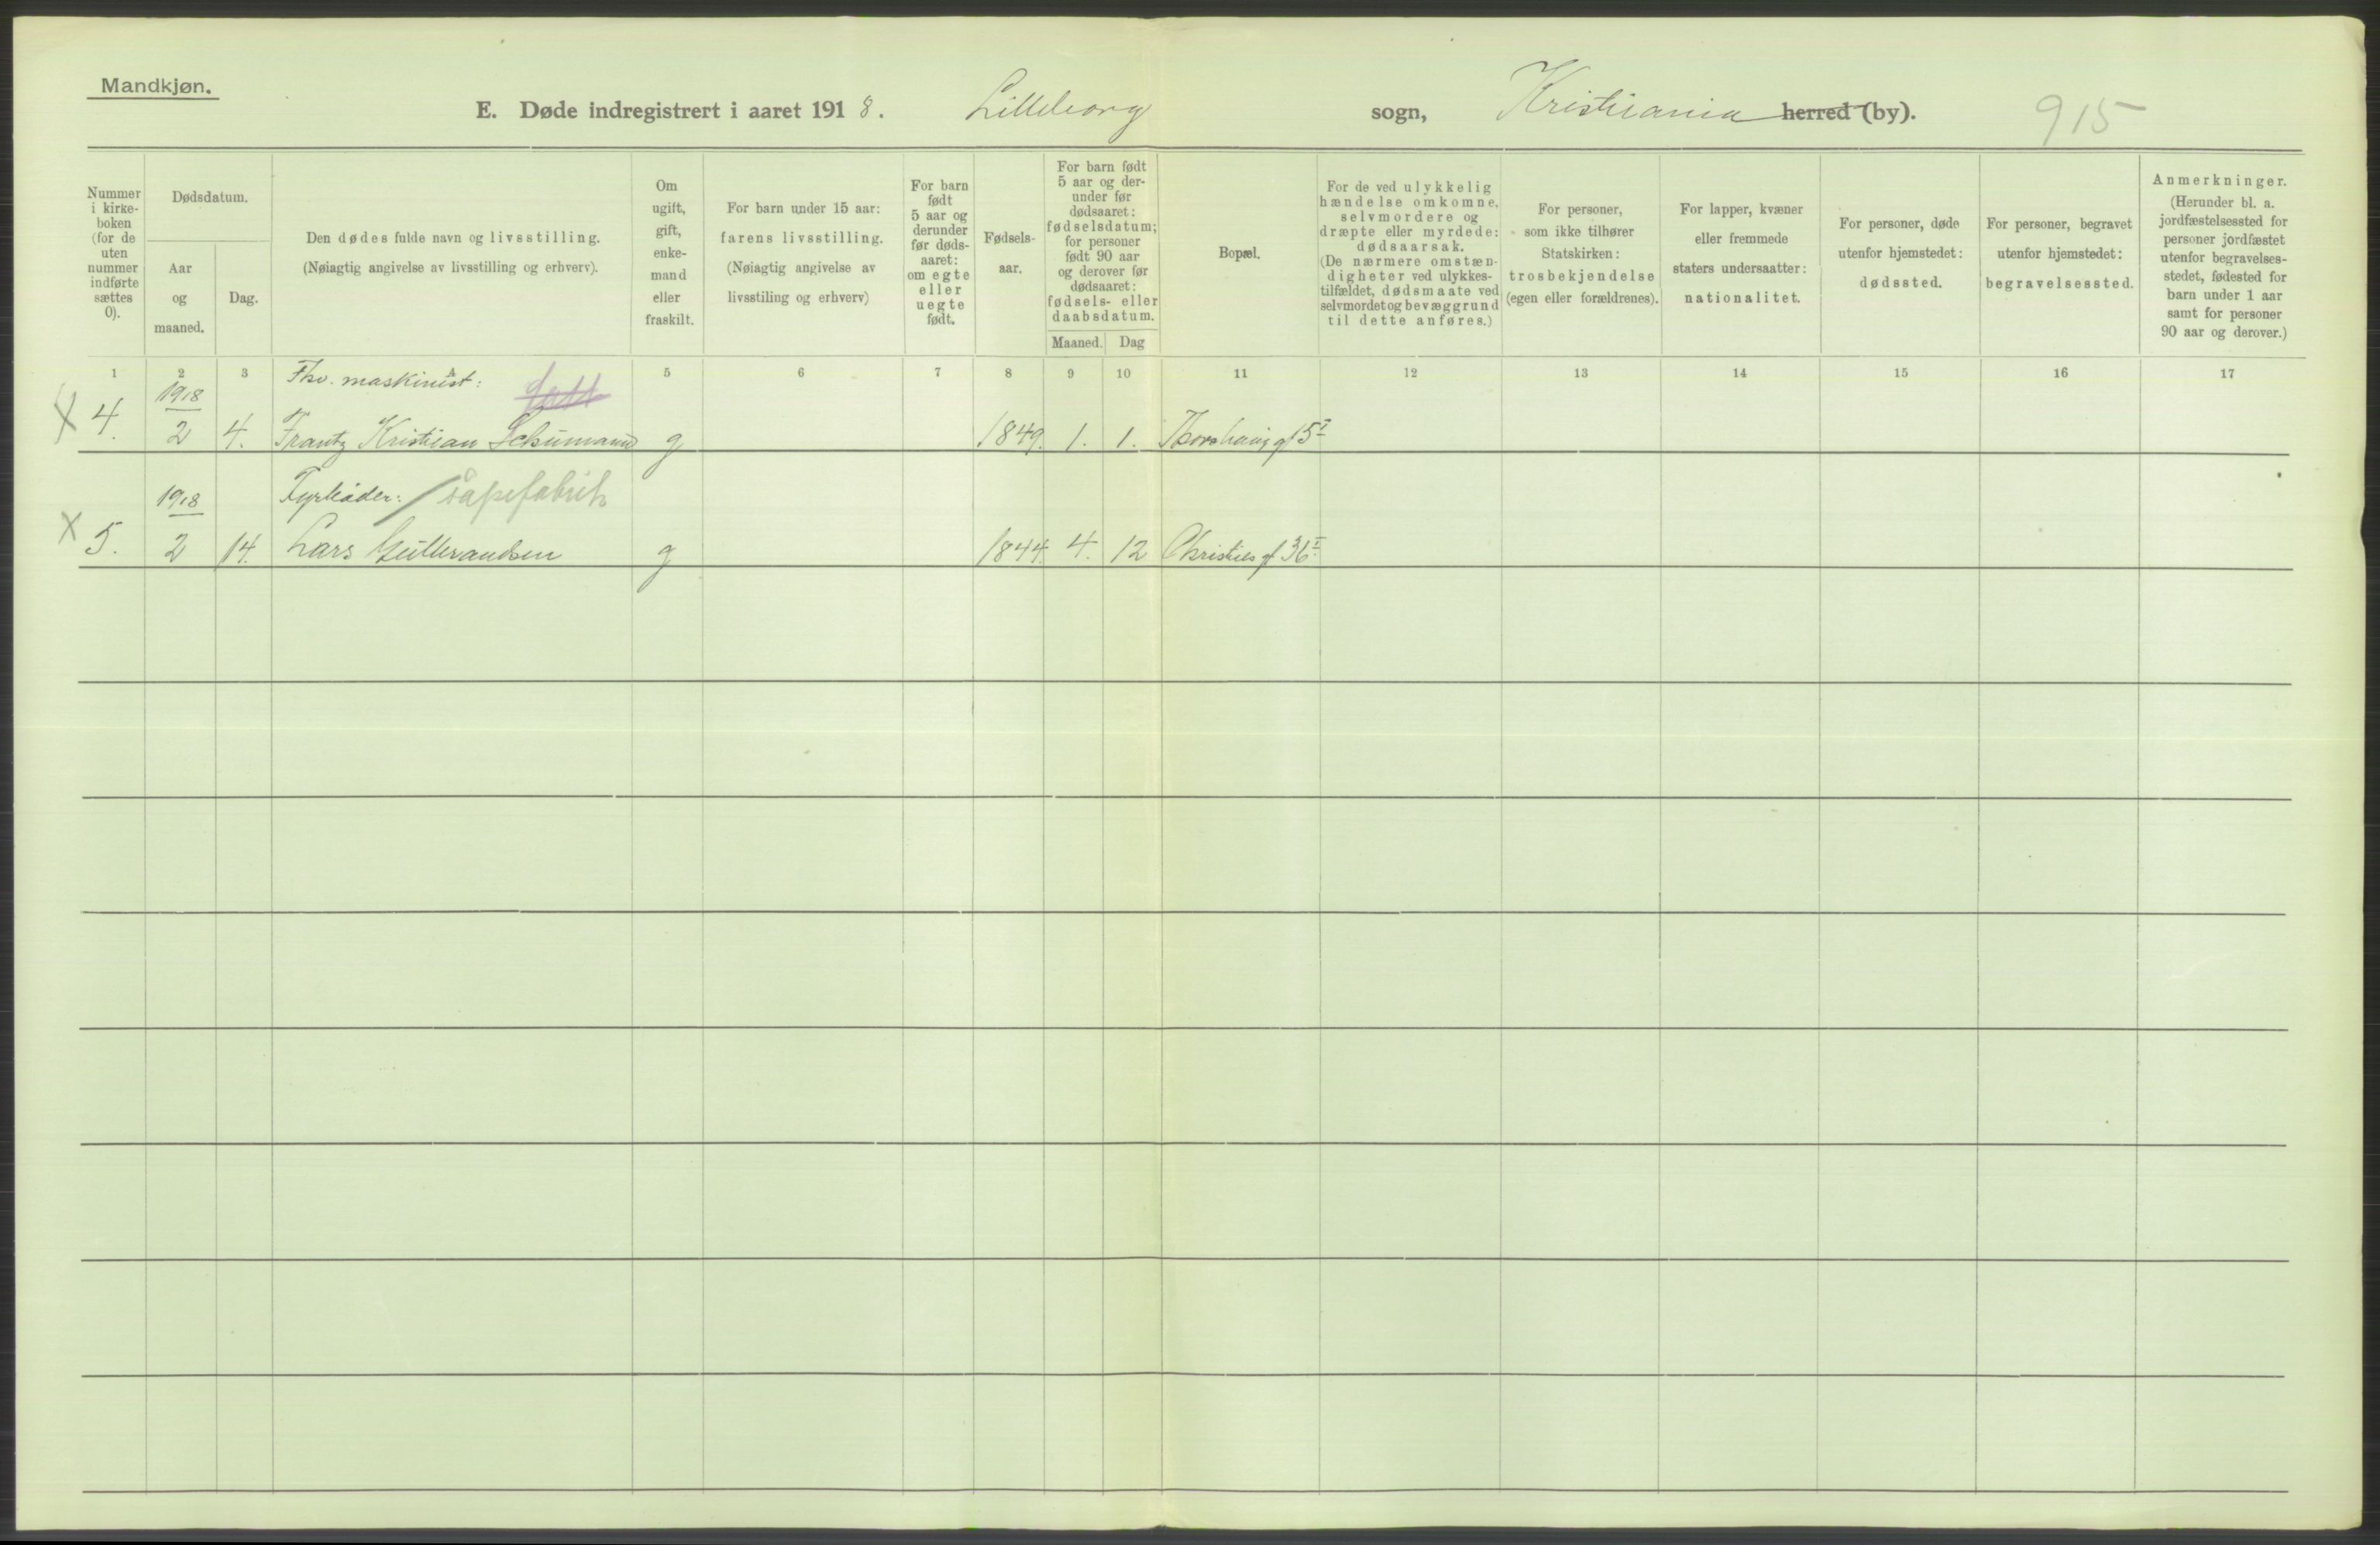 Mandkjøn.
E. Døde indregistrert i aaret 1918. Lilleborg sogn, Kristiania herred (by). 915
Nummer i kirke-boken (for de uten nummer indførte sættes 0).
Dødsdatum.
Aar og maaned.
Dag.
Den dødes fulde navn og livsstilling.
(Nøiagtig angivelse av livsstilling og erhverv).
Om ugift, gift, enke-mand eller fraskilt.
For barn under 15 aar: farens livsstilling.
(Nøiagtig angivelse av livsstiling og erhverv)
For barn født 5 aar og derunder før døds-aaret: om egte eller uegte født.
Fødsels-aar.
For barn født 5 aar og der-under før dødsaaret: fødselsdatum; for personer født 90 aar og derover før dødsaaret: fødsels- eller daabsdatum.
Maaned. Dag
Bopæl.
For de ved ulykkelig hændelse omkomne, selvmordere og dræpte eller myrdede: dødsaarsak.
(De nærmere omstæn-digheter ved ulykkes-tilfældet, dødsmaate ved selvmordet og bevæggrund til dette anføres.)
For personer, som ikke tilhører Statskirken: trosbekjendelse (egen eller forældrenes).
For lapper, kvæner eller fremmede staters undersaatter: nationalitet.
For personer, døde utenfor hjemstedet: dødssted.
For personer, begravet utenfor hjemstedet: begravelsessted.
Anmerkninger.
(Herunder bl. a. jordfæstelsessted for personer jordfæstet utenfor begravelses-stedet, fødested for barn under 1 aar samt for personer 90 aar og derover.)
1 2 3 4 5 6 7 8 9 10 11 12 13 14 15 16 17
1918 Fhv. maskinist:
X 4. 2 4. Frantz Kristian Schumann g 1849. 1. 1. Thorshaugg 15 I
1918 Fyrbøder: / såpefabrik
X 5. 2 14. Lars Gulbrandsen g 1844. 4. 12 Christies g 36 I